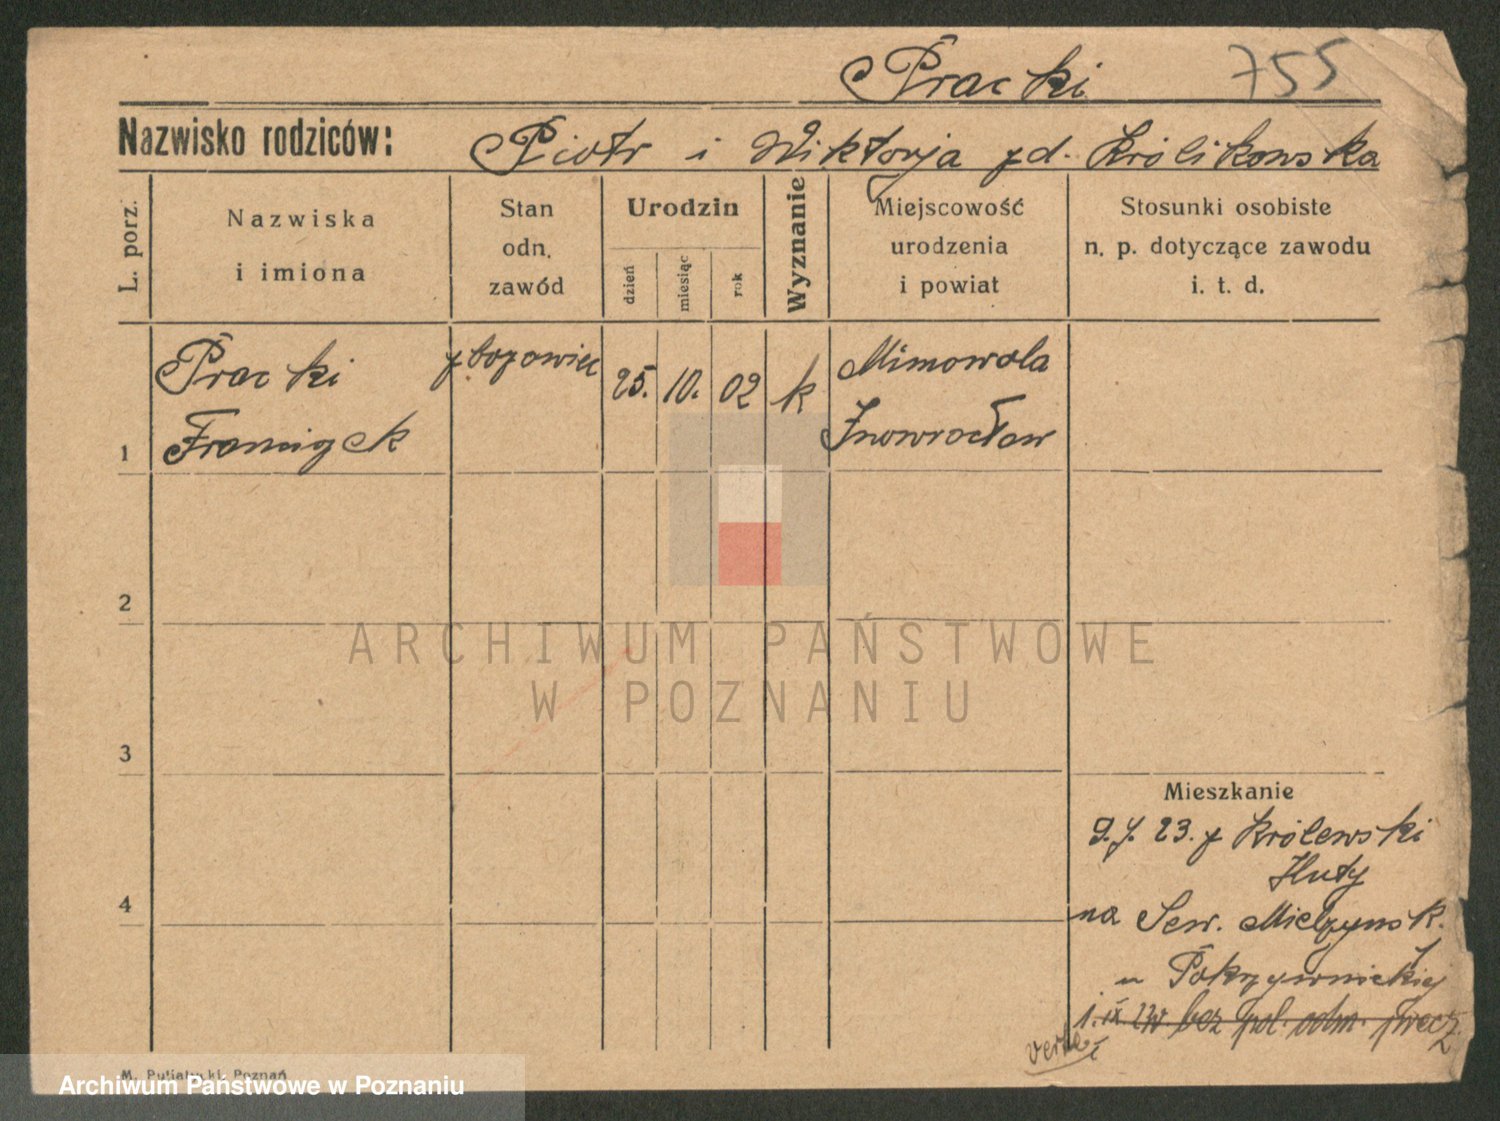 Pracki 755
Nazwisko rodziców: Piotr i Wiktorja zd. Królikowska
L. porz.
Nazwiska
i imiona
Stan
odn.
zawód
Urodzin
dzień
miesiąc
rok
Wyznanie
Miejscowość
urodzenia
i powiat
Stosunki osobiste
n. p. dotyczące zawodu
i. t. d.
1
Pracki
Franciszek
25. 10. 02 k
Mimowola
Inowrocław
2
3
4
ARCHIWUM PAŃSTWOWE
W POZNANIU
Mieszkanie
23. z Królewski
Huty
na Sew. Mielżyńsk.
u Pokrzywnickiej
1. IX bez pol. odm. precz
verte
M. Putiatycki, Poznań
Archiwum Państwowe w Poznaniu